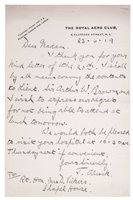 THE ROYAL AERO CLUB,
3, CLIFFORD STREET, W.1.
23.6.19
Dear Madam
I thank you for your
kind letter of
by all means convey the contents
to Lieut. Sir Arthur W. Brown and
I wish to express our regrets
for not being able to attend at
lunch tomorrow.
We would both be pleased
to visit your hospital at 10.30 am
Thursday next if convenient
Yours sincerely
J. Alcock
To Rt. Hon.
Chapel House